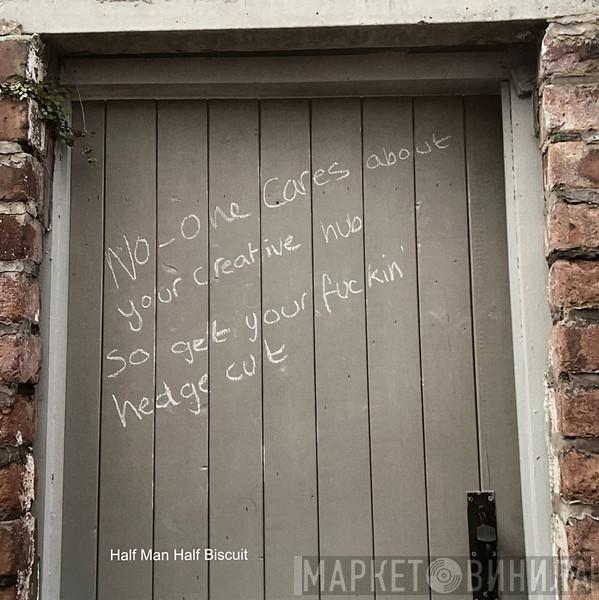 No-one Cares about
your creative hub
so get your fuckin'
hedge cut
Half Man Half Biscuit
МАРКЕТ ВИНИЛА